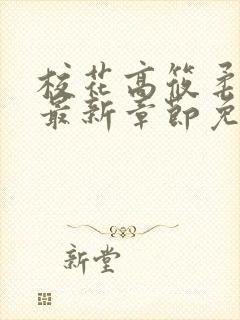 校花高筱柔
最新章节免
新堂